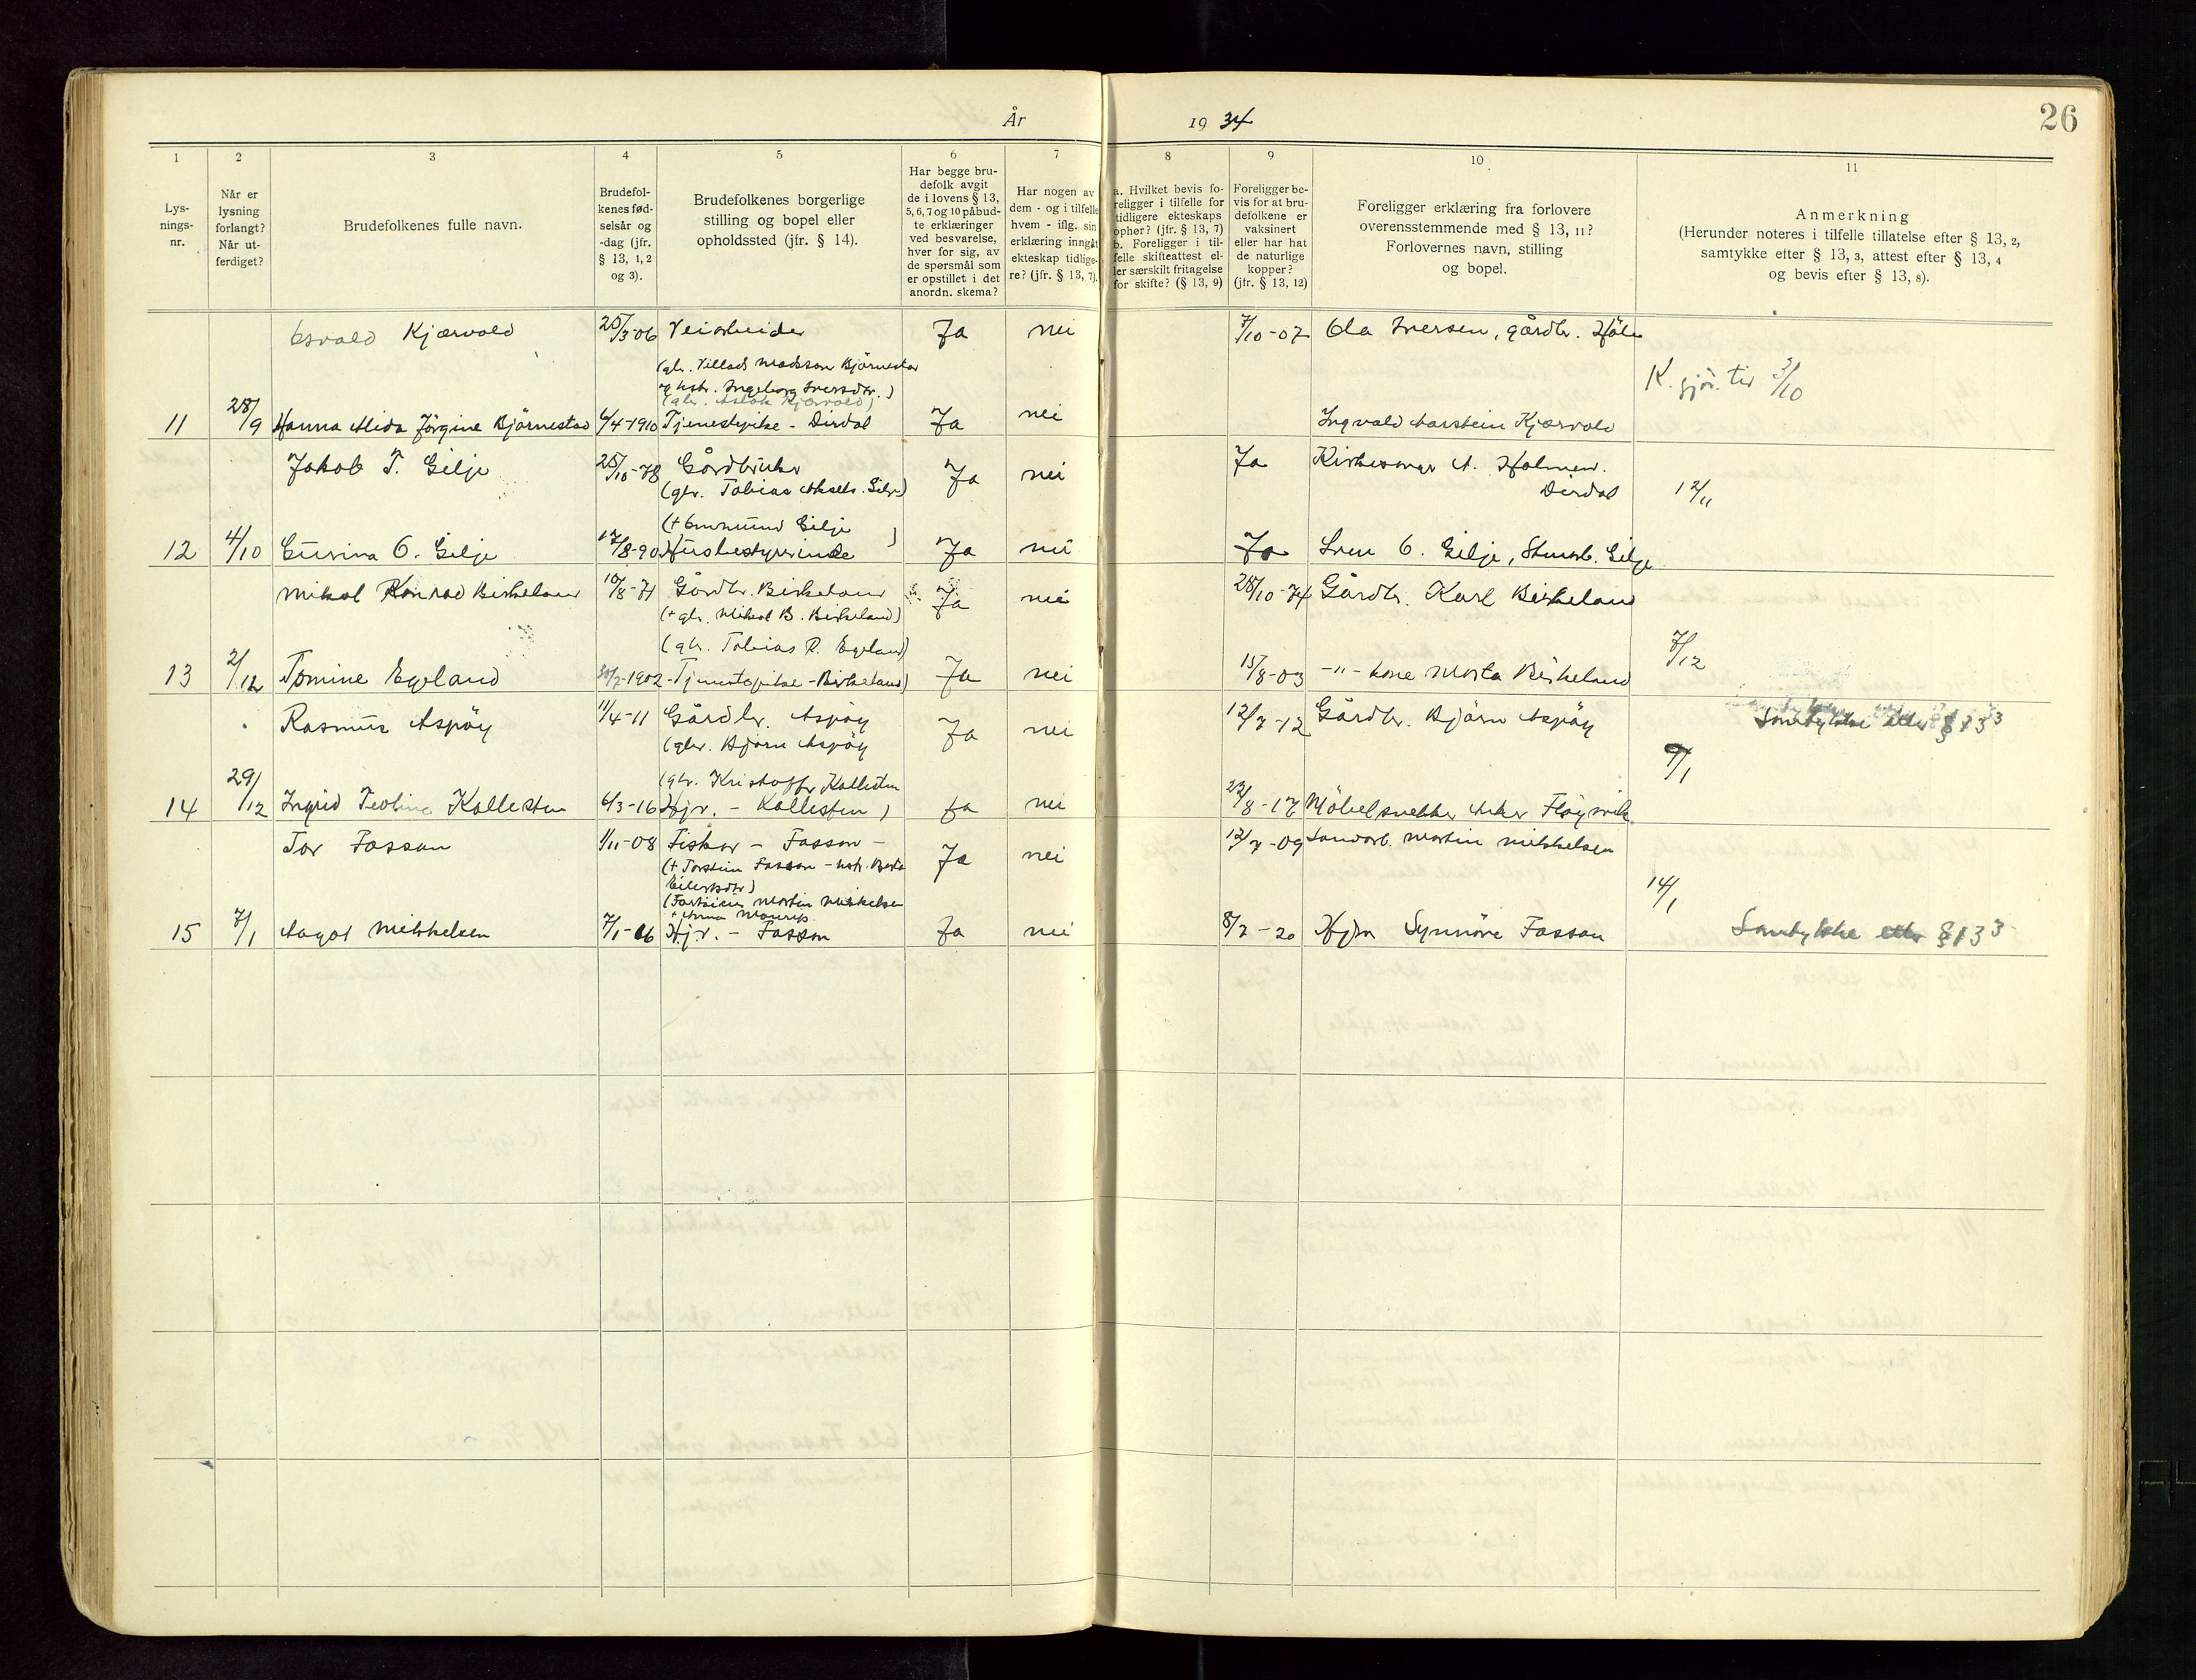 År 1934
26
1
Lys-
nings-
nr.
2
Når er
lysning
forlangt?
Når ut-
ferdiget?
3
Brudefolkenes fulle navn.
4
Brudefol-
kenes fød-
selsår og
-dag (jfr.
§ 13, 1, 2
og 3).
5
Brudefolkenes borgerlige
stilling og bopel eller
opholdssted (jfr. § 14).
6
Har begge bru-
defolk avgit
de i lovens § 13,
5, 6, 7 og 10 påbud-
te erklæringer
ved besvarelse,
hver for sig, av
de spørsmål som
er opstillet i det
anordn. skema?
7
Har nogen av
dem - og i tilfelle
hvem - iflg. sin
erklæring inngåt
ekteskap tidlige-
re? (jfr. § 13, 7).
8
a. Hvilket bevis fo-
religger i tilfelle for
tidligere ekteskaps
ophør? (jfr. § 13, 7)
b. Foreligger i til-
felle skifteattest el-
ler særskilt fritagelse
for skifte? (§ 13, 9)
9
Foreligger be-
vis for at bru-
defolkene er
vaksinert
eller har hat
de naturlige
kopper?
(jfr. § 13, 12)
10
Foreligger erklæring fra forlovere
overensstemmende med § 13, 11?
Forlovernes navn, stilling
og bopel.
11
Anmerkning
(Herunder noteres i tilfelle tillatelse efter § 13, 2,
samtykke efter § 13, 3, attest efter § 13, 4
og bevis efter § 13, 8).
Osvald Kjærvold 25/3-06 Veiarbeider Ja nei 7/10-07 Ola Iversen, gårdbr.
(gbr. Villads Madsson Bjørnestad
og hstr. Ingeborg Iversdtr.)
(gbr. Aslak Kjærvold)
K. gjør. til 3/10
11 28/9 Hanna Alida Jørgine Bjørnestad 6/4-1910 Tjenestepike - Dirdal Ja nei Ingvald Aarstein Kjærvold
Jakob T. Gilje 25/10-78 Gårdbruker Ja nei Ja Kirkesanger A. Holmen.
(gbr. Tobias Gilje) Dirdal
12/11
(+ Ommund Gilje)
12 4/10 Gurina O. Gilje 17/8-90 Husbestyrerinde Ja nei Ja Sven O. Gilje, Gilje
Mikal Konrad Birkeland 10/8-71 Gårdbr. Birkeland Ja nei 28/10-74 Gårdbr. Karl Birkeland
(+ gbr. Mikal B. Birkeland)
(gbr. Tobias R. Egeland)
7/12
13 2/12 Tomine Egeland 30/7-1902 - Tjenestepike - Birkeland) Ja nei 15/8-03 -"- kone Marta Birkeland
Rasmus Aspøy 11/4-11 Gårdbr. Aspøy Ja nei 12/7-12 Gårdbr. Bjørn Aspøy Samtykke etter § 13 3
(gbr. Bjørn Aspøy
9/1
(gbr. Kristoffer Kallesten
14 29/12 Ingrid Teoline Kallesten 6/3-16 Hjv. - Kallesten) Ja nei 23/8-17 Møbelsnekker Fløysvik
Tor Fossan 1/11-08 Fisker - Fossan - Ja nei 12/7-09 Martin Mikkelsen
(+ Torstein Fossan - hstr. Berta
Eilertsdtr)
(Martin Mikkelsen
+ Anna
14/1
15 7/1 Aagot Mikkelsen 7/1-16 Hjv. - Fossan Ja nei 8/7-20 Synnøve Fossan Samtykke etter § 13 3